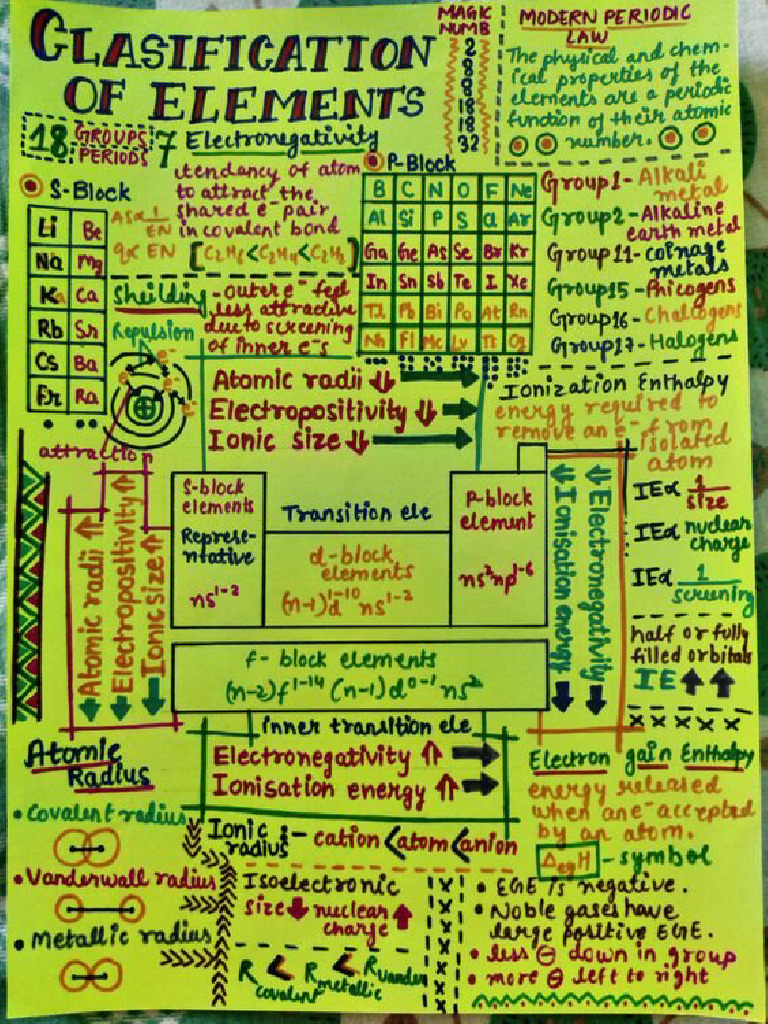 CLASIFICATION
OF ELEMENTS
MAGIC
NUMB
2
8
8
18
18
32
MODERN PERIODIC
LAW
The physical and chem-
ical properties of the
elements are a periodic
function of their atomic
number.
18 GROUPS
PERIODS 7
Electronegativity
tendancy of atom
to attract the
shared e⁻ pair
in covalent bond
[C₂H₆<C₂H₄<C₂H₂]
S-Block
Li Be
Na Mg
K Ca
Rb Sr
Cs Ba
Fr Ra
P-Block
B C N O F Ne
Al Si P S Cl Ar
Ga Ge As Se Br Kr
In Sn Sb Te I Xe
Tl Pb Bi Po At Rn
Nh Fl Mc Lv Ts Og
Group1- Alkali
metal
Group2- Alkaline
earth metal
Group 11- coinage
metals
Group15- Phicogens
Group16- Chalcogens
Group17- Halogens
Sheilding -outer e⁻ feel
less attractive
due to screening
of inner e⁻s
Repulsion
attraction
Atomic radii ↓ →
Electropositivity ↓ →
Ionic size ↓ →
Ionization Enthalpy
energy required to
remove an e⁻ from
isolated
atom
IE∝ 1/size
IE∝ nuclear
charge
IE∝ 1/screening
half or fully
filled orbitals
IE ↑ ↑
Atomic radii ↑
Electropositivity ↑
Ionic size ↑
S-block
elements
Represe-
ntative
ns¹⁻²
Transition ele
d-block
elements
(n-1)d¹⁻¹⁰ ns¹⁻²
P-block
element
ns²np¹⁻⁶
Ionisation energy ↓
Electronegativity ↓
f- block elements
(n-2)f¹⁻¹⁴ (n-1)d⁰⁻¹ ns²
inner transition ele
Electronegativity ↑ →
Ionisation energy ↑ →
Atomic
Radius
• Covalent radius
• Vanderwall radius
• Metallic radius
Ionic :- cation <atom<anion
radius
Isoelectronic
size ↓ nuclear ↑
charge
R covalent < R metallic < R vander
Electron gain Enthalpy
energy released
when an e⁻ accepted
by an atom.
ΔegH -symbol
• EGE is negative.
• Noble gases have
large positive EGE.
• less ⊖ down in group
• more ⊖ left to right